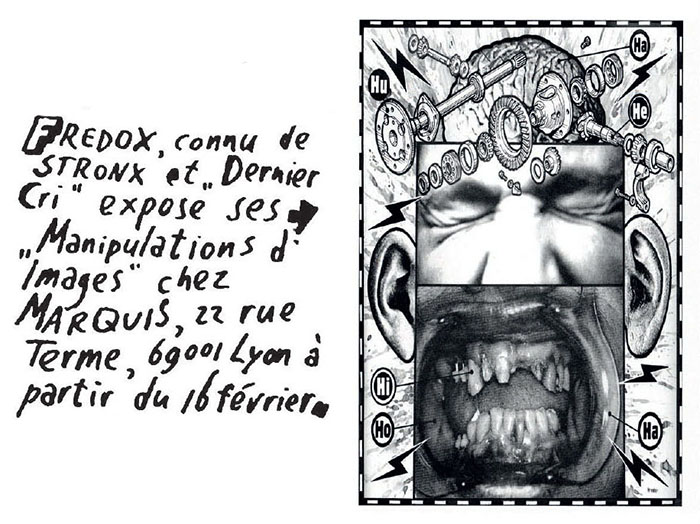 FREDOX, connu de
STRONX et „Dernier
Cri“ expose ses
„Manipulations d'
Images“ chez
MARQUIS, 22 rue
Terme, 69001 Lyon à
partir du 16 février.
Ha
Hu
He
Hi
Ho
Ha